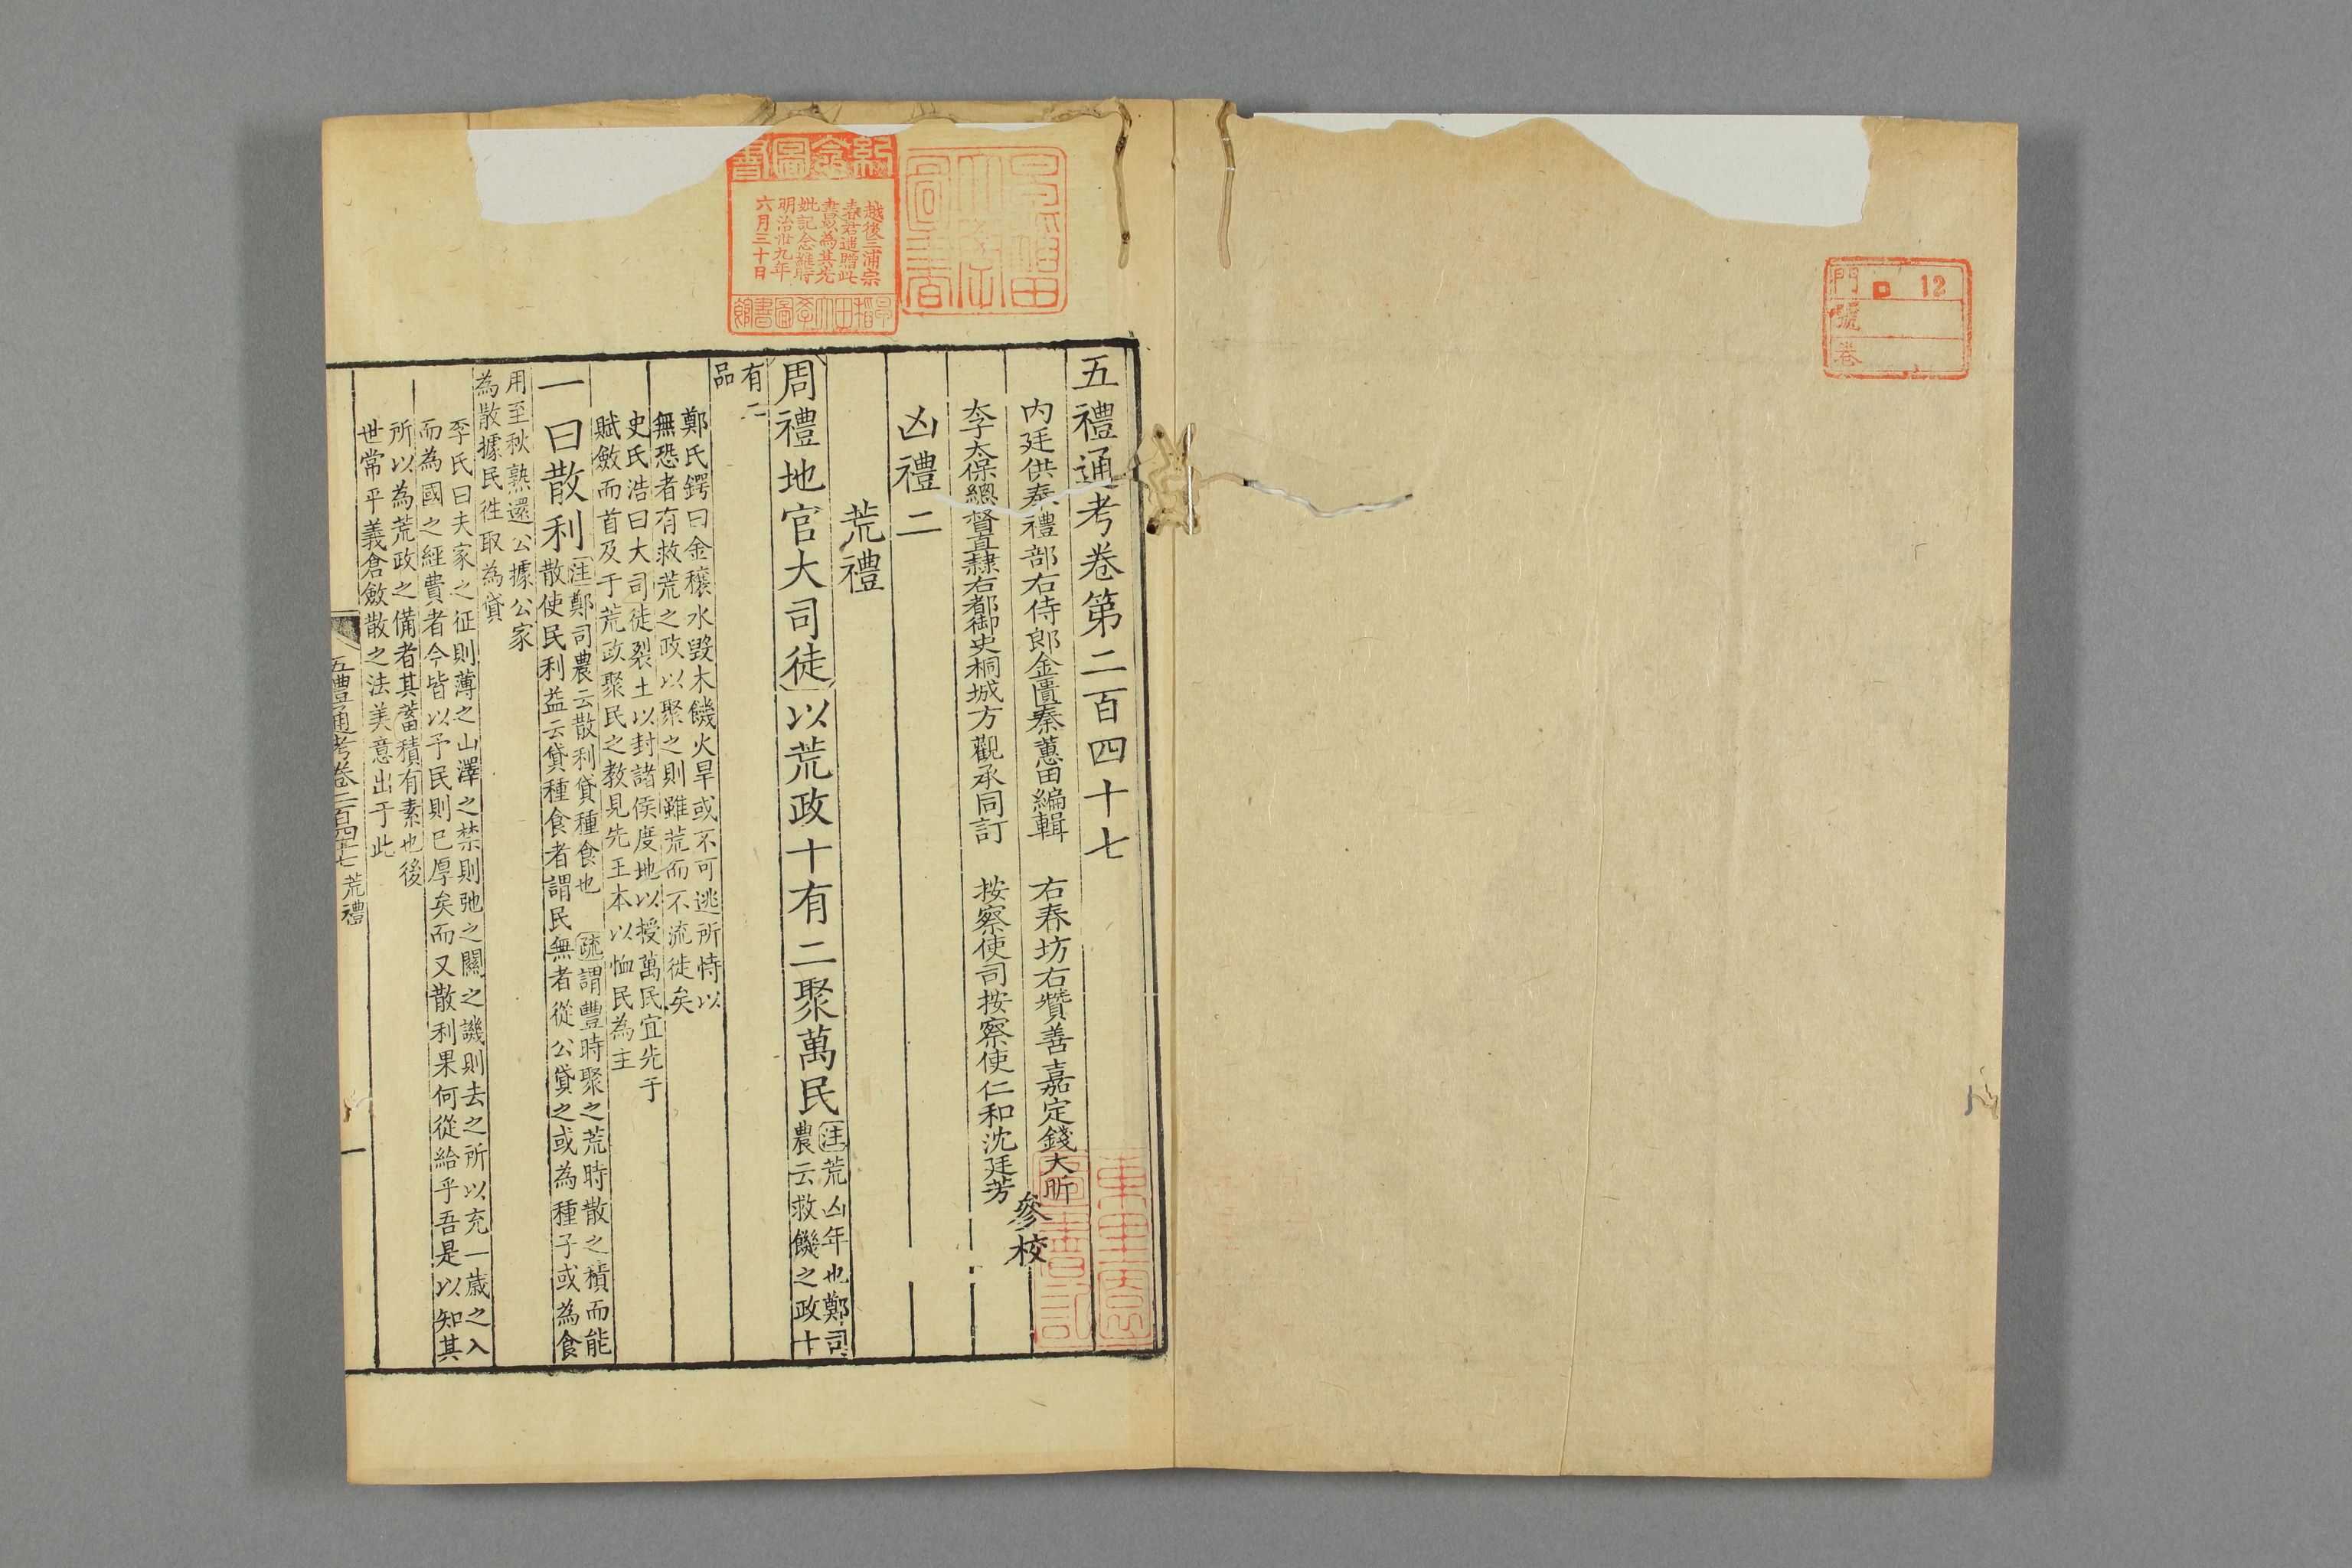 門 ロ 12
號
卷
五禮通考卷第二百四十七
內廷供奉禮部右侍郎金匱秦蕙田編輯 右春坊右贊善嘉定錢大昕
太子太保總督直隸右都御史桐城方觀承同訂 按察使司按察使仁和沈廷芳
參校
凶禮二
荒禮
周禮地官大司徒以荒政十有二聚萬民注荒凶年也鄭司
農云救饑之政十
有二
品
鄭氏鍔曰金穰水毀木饑火旱或不可逃所恃以
無恐者有救荒之政以聚之則雖荒而不流徙矣
史氏浩曰大司徒裂土以封諸侯度地以授萬民宜先于
賦斂而首及于荒政聚民之教見先王本以恤民為主
一曰散利注鄭司農云散利貸種食也 疏謂豐時聚之荒時散之積而能
散使民利益云貸種食者謂民無者從公貸之或為種子或為食
用至秋熟還公據公家
為散據民徃取為貸
李氏曰夫家之征則薄之山澤之禁則弛之關之譏則去之所以充一歲之入
而為國之經費者今皆以予民則已厚矣而又散利果何從給乎吾是以知其
所以為荒政之備者其蓄積有素也後
世常平義倉斂散之法美意出于此
五禮通考卷二百四十七 荒禮
一
早稻田大學圖書
紀念圖書
越後三浦宗
春君遺贈此
書以為其先
妣記念維時
明治卅九年
六月三十日
早稻田大學圖書館